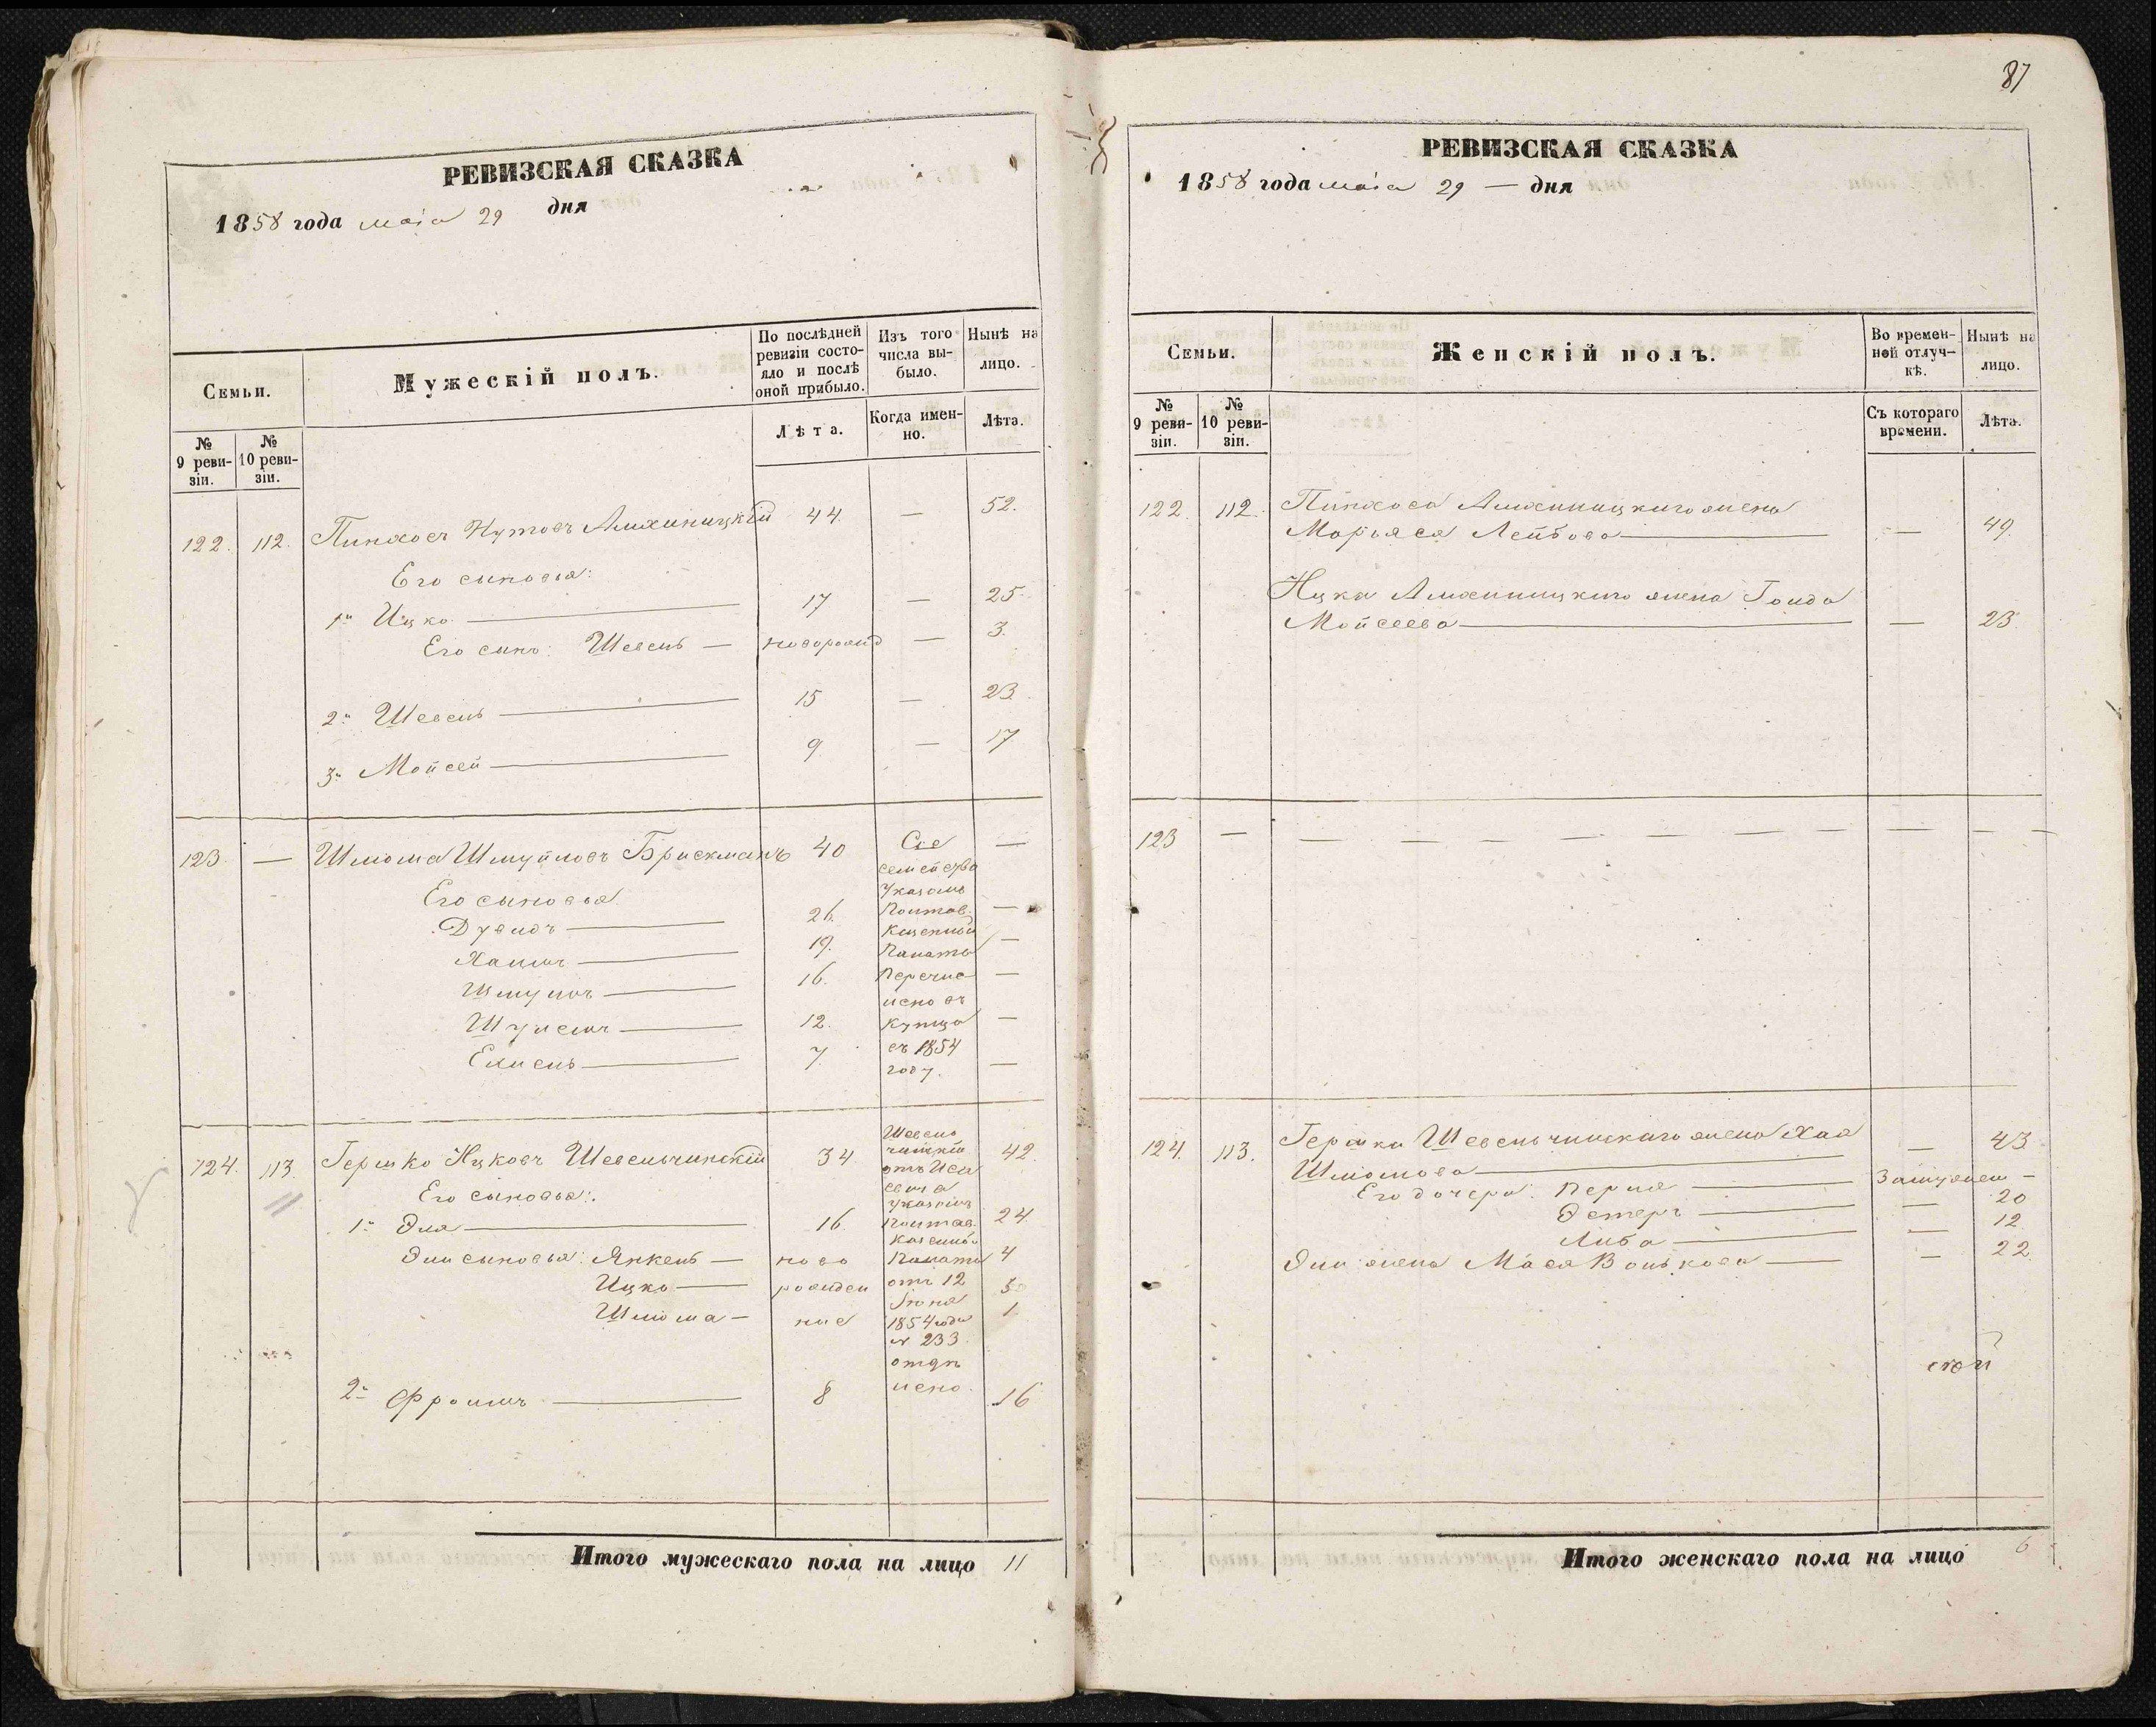 РЕВИЗСКАЯ СКАЗКА
1858 года маія 29 дня
Семьи.
Мужескій полъ.
По послѣдней ревизіи состояло и послѣ оной прибыло.
Изъ того числа выбыло.
Нынѣ на лицо.
№ 9 ревизіи.
№ 10 ревизіи.
Лѣта.
Когда именно.
Лѣта.
122. 112. Пинхосъ Нутовъ 44 — 52.
Его сыновья:
1й Ицко — 17 — 25
Его сынъ: Шевель — новорожд — 3.
2й Шевель — 15 — 23
3й Мойсей — 9 — 17
123 — Шлiома Шмуйловъ Брискманъ 40 —
Его сыновья
Дувидъ — 26. —
Хаимъ — 19. —
Шмуль — 16. —
12. —
7. —
Сіе
семейство
указомъ
Полтав.
казенной
палаты
перечис
лено въ
купцы
съ 1854
году.
124. 113. Гершко Ицковъ Шевельчинскій 34 42
Его сыновья:
1й Эля — 16. 24
Эли сыновья: Янкель — ново 4
Ицко — рожден 3
Шлiома — ные 1
2й Фроимъ — 8 16
указомъ
Полтав.
казенной
палаты
отъ 12
Іюня
1854 года
№ 233
отдѣ
лено.
Итого мужескаго пола на лицо 11
87
РЕВИЗСКАЯ СКАЗКА
1858 года маія 29 — дня
Семьи.
Женскій полъ.
Во временной отлучкѣ.
Нынѣ на лицо.
№ 9 ревизіи.
№ 10 ревизіи.
Съ котораго времени.
Лѣта.
122. 112. Пинхоса жена
Марьяся Лейбова — — 49.
Ицка жена Голда
Мойсеева — — 23
123 —
124. 113. Гершки Шевельчинскаго жена Хая
Шлiомова — — 43
Его дочери: Перля — Замужем —
Эстеръ — — 20
Либа — — 12
Эли жена Мася Волькова — — 22
Итого женскаго пола на лицо 6